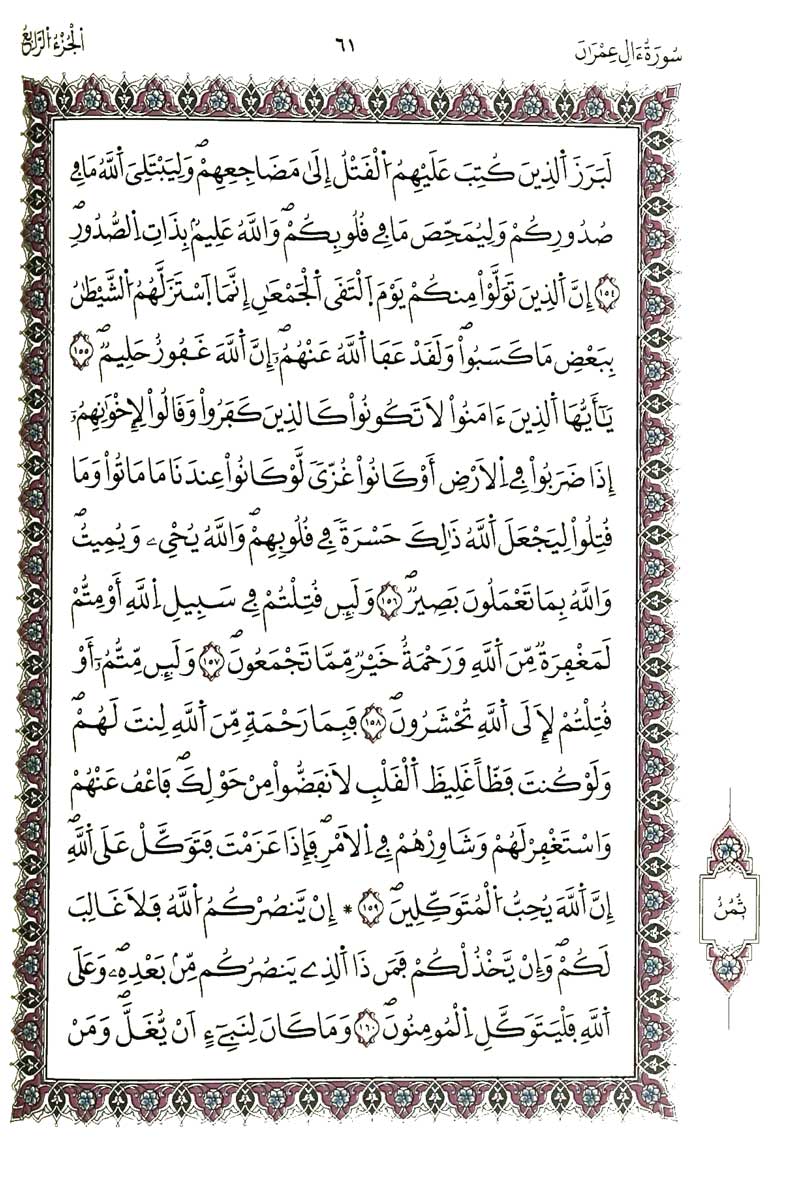 سُورَةُ ءَالِ عِمْرَانَ
٦١
اَلْجُزْءُ اَلرَّابِعُ
لَبَرَزَ اَ۬لذِينَ كُتِبَ عَلَيْهِمُ اُ۬لْقَتْلُ إِلَىٰ مَضَاجِعِهِمْۖ وَلِيَبْتَلِيَ اَ۬للَّهُ مَا فِے
صُدُورِكُمْ وَلِيُمَحِّصَ مَا فِے قُلُوبِكُمْۖ وَاللَّهُ عَلِيمُۢ بِذَاتِ اِ۬لصُّدُورِۖ
١٥٤ إِنَّ اَ۬لذِينَ تَوَلَّوْاْ مِنكُمْ يَوْمَ اَ۪لْتَقَى اَ۬لْجَمْعَٰنِ إِنَّمَا اَ۪سْتَزَلَّهُمُ اُ۬لشَّيْطَٰنُ
بِبَعْضِ مَا كَسَبُواْۖ وَلَقَدْ عَفَا اَ۬للَّهُ عَنْهُمُۥٓۖ إِنَّ اَ۬للَّهَ غَفُورٌ حَلِيمٌۖ ١٥٥
يَٰٓأَيُّهَا اَ۬لذِينَ ءَامَنُواْ لَا تَكُونُواْ كَالذِينَ كَفَرُواْ وَقَالُواْ لِإِخْوَٰنِهِمُۥٓ
إِذَا ضَرَبُواْ فِے اِ۬لَارْضِ أَوْ كَانُواْ غُزّىٗ لَّوْ كَانُواْ عِندَنَا مَا مَاتُواْ وَمَا
قُتِلُواْ لِيَجْعَلَ اَ۬للَّهُ ذَٰلِكَ حَسْرَةٗ فِے قُلُوبِهِمْۖ وَاللَّهُ يُحْيِۦ وَيُمِيتُۖ
وَاللَّهُ بِمَا تَعْمَلُونَ بَصِيرٌۖ ١٥٦ وَلَئِن قُتِلْتُمْ فِے سَبِيلِ اِ۬للَّهِ أَوْ مِتُّمْ
لَمَغْفِرَةٌ مِّنَ اَ۬للَّهِ وَرَحْمَةٌ خَيْرٌ مِّمَّا تَجْمَعُونَۖ ١٥٧ وَلَئِن مِّتُّمُۥٓ أَوْ
قُتِلْتُمْ لَإِلَى اَ۬للَّهِ تُحْشَرُونَۖ ١٥٨ فَبِمَا رَحْمَةٍ مِّنَ اَ۬للَّهِ لِنتَ لَهُمْۖ
وَلَوْ كُنتَ فَظّاً غَلِيظَ اَ۬لْقَلْبِ لَانفَضُّواْ مِنْ حَوْلِكَۖ فَاعْفُ عَنْهُمْ
وَاسْتَغْفِرْ لَهُمْ وَشَاوِرْهُمْ فِے اِ۬لَامْرِۖ فَإِذَا عَزَمْتَ فَتَوَكَّلْ عَلَى اَ۬للَّهِۖ
إِنَّ اَ۬للَّهَ يُحِبُّ اُ۬لْمُتَوَكِّلِينَۖ ١٥٩ * إِنْ يَّنصُرْكُمُ اُ۬للَّهُ فَلَا غَالِبَ
ثُمُنُ
لَكُمْۖ وَإِنْ يَّخْذُلْكُمْ فَمَن ذَا اَ۬لذِے يَنصُرُكُم مِّنۢ بَعْدِهِۦۖ وَعَلَى
اَ۬للَّهِ فَلْيَتَوَكَّلِ اِ۬لْمُومِنُونَۖ ١٦٠ وَمَا كَانَ لِنَبِےٓءٍ اَنْ يُّغَلَّۖ وَمَنْ